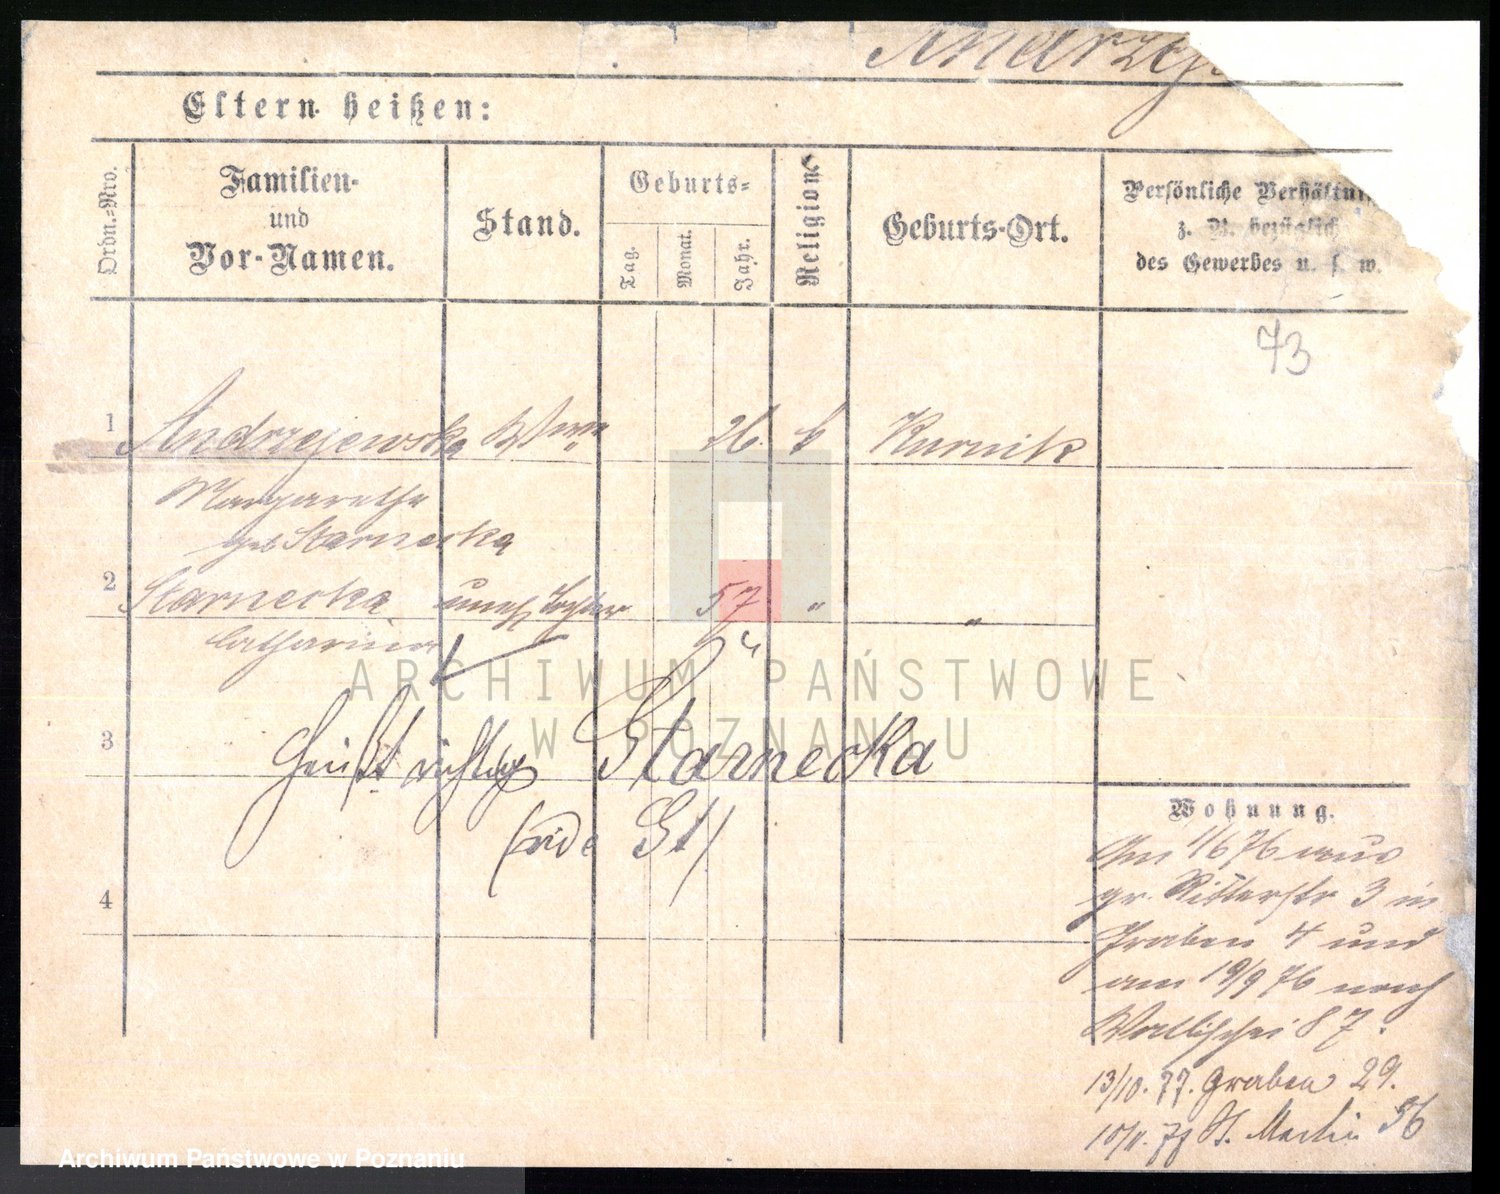 Andrzej
Eltern heißen:
Ordn.=Nro.
Familien-
und
Vor-Namen.
Stand.
Geburts=
Tag.
Monat.
Jahr.
Religion
Geburts-Ort.
Persönliche Verhältni
z. B. bezüglich
des Gewerbes u. s. w.
73
1 Andrzejewska Wwe 26. k Kurnik
Margarethe
geb Starnecka
2 Starnecka unehl Tochter 57 " "
Catharina
3 heißt richtig Starnecka
(vide St)
4
Wohnung.
Am 1/6 76 aus
gr. Ritterstr 3 in
Graben 4 und
am 19/9 76 nach
Wallischei 87.
13/10. 77. Graben 29.
St. Martin 36
ARCHIWUM PAŃSTWOWE
W POZNANIU
Archiwum Państwowe w Poznaniu